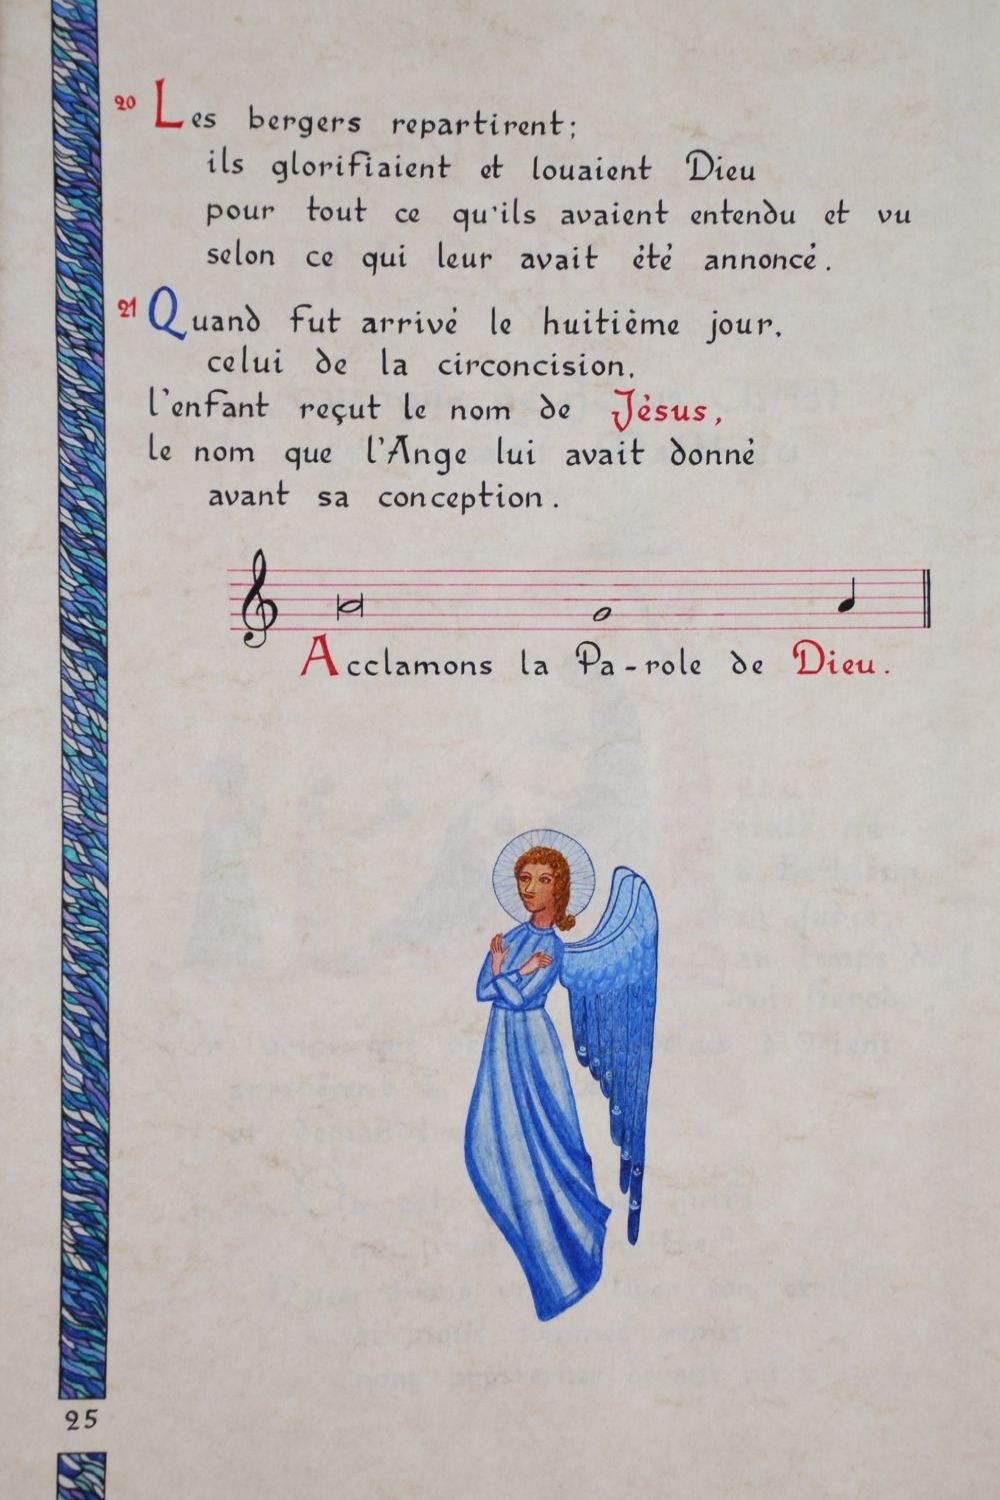 20 Les bergers repartirent;
ils glorifiaient et louaient Dieu
pour tout ce qu'ils avaient entendu et vu
selon ce qui leur avait été annoncé.
21 Quand fut arrivé le huitième jour,
celui de la circoncision,
l'enfant reçut le nom de Jésus,
le nom que l'Ange lui avait donné
avant sa conception.
Acclamons la Pa-role de Dieu.
25